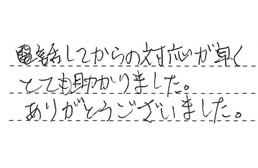 電話してからの対応が早く
とても助かりました。
ありがとうございました。